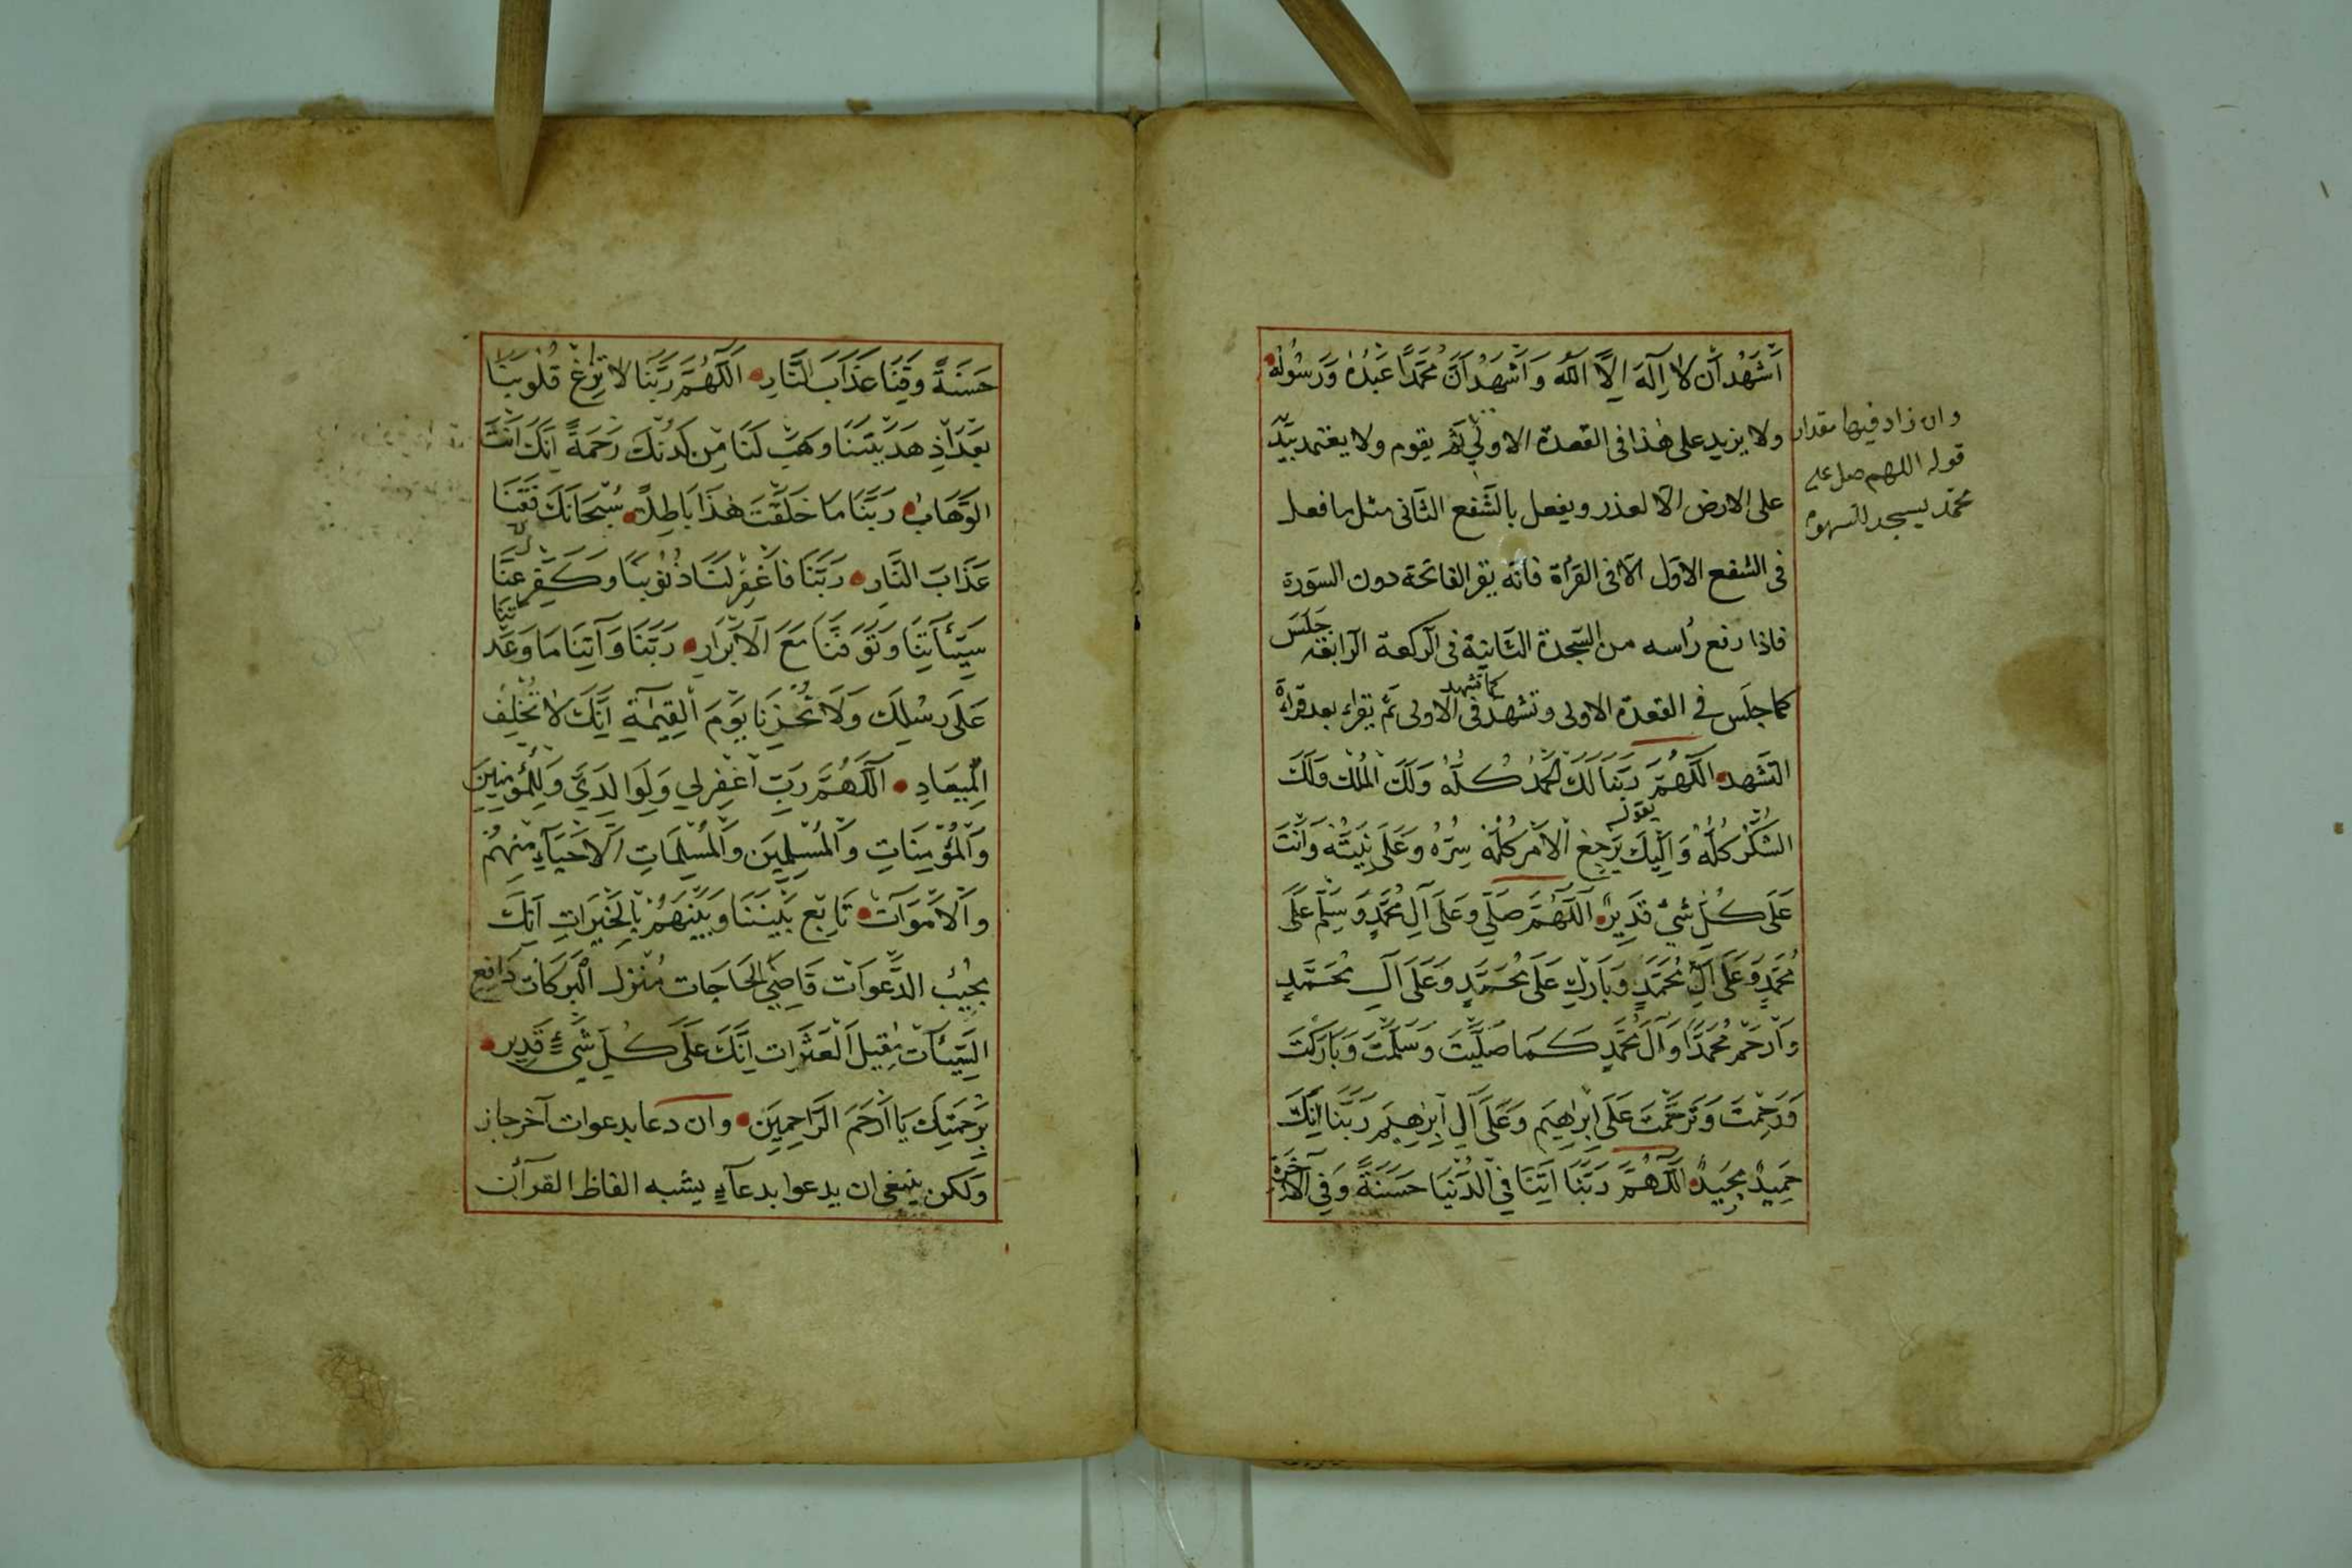 اَشْهَدُ اَنْ لَا اِلَهَ اِلَّا اللّٰه وَ اَشْهَدُ اَنَّ مُحَمَّداً عَبْدُهُ وَرَسُولُهُ
ولا يزيد على هذا فى القعدة الاولى ثم يقوم ولا يعتمد بيد
على الارض الّا لعذر ويفعل بالشّفع الثّانى مثل ما فعل
فى الشفع الاوّل الّا فى القرأة فانّه يقر الفاتحة دون السورة
فاذا رفع رُاسه من السّجدة الثّانية فى الرّكعة الرّابعة جَلَسَ
كما جلَس فى القعدة الاولى وتشهد كما تشهد فى الاولى ثمّ يقراء بعد قراة
التّشهد اللّهُمَّ رَبَّنَا لَكَ الحَمْدُ كُلُّهُ وَلَكَ الْمُلْكُ وَلَكَ
الشُّكْرُ كُلُّهُ وَاِلَيْكَ يَرْجِعُ الْاَمْرُ كُلُّهُ سِرُّهُ وَعَلَى نِيَتُهُ وَاَنْتَ
يقول
عَلَى كُلِّ شَيْءٍ قَدِيرٌ اَللّهُمَّ صَلِّي وَعَلَى آلِ مُحَمَّدٍ وَسَلِّمْ عَلَى
مُحَمَّدٍ وَعَلَى آلِ مُحَمَّدٍ وَبَارِكْ عَلَى مُحَمَّدٍ وَعَلَى آلِ مُحَمَّدٍ
وَارْحَمْ مُحَمَّدًا وَآلَ مُحَمَّدٍ كَمَا صَلَّيْتَ وَسَلَّمْتَ وَبَارَكْتَ
وَرَحِمْتَ وَتَرَحَّمْتَ عَلَى اِبْرٰهِيمَ وَعَلَى آلِ اِبْرٰهِيمَ رَبَّنَا اِنَّكَ
حَمِيدٌ مَجِيدٌ اَللّهُمَّ رَبَّنَا اَتِنَا فِي الدُّنْيَا حَسَنَةً وَفِي الْآخِرَةِ
وان زاد فيها مقدار
قوله اللهم صل على
محمّد يسجد للسهو
حَسَنَةً وَقِنَا عَذَابَ النَّارِ اَللّهُمَّ رَبَّنَا لَا تُزِغْ قُلُوبَنَا
بَعْدَ اِذْ هَدَيْتَنَا وَهَبْ لَنَا مِنْ لَدُنْكَ رَحْمَةً اِنَّكَ اَنْتَ
الوَهَّابُ رَبَّنَا مَا خَلَقْتَ هٰذَا بَاطِلًا سُبْحَانَكَ فَقِنَا
عَذَابَ النَّارِ رَبَّنَا فَاغْفِرْ لَنَا ذُنُوبَنَا وَكَفِّرْ عَنَّا
سَيِّئَاتِنَا وَتَوَفَّنَا مَعَ الْاَبْرَارِ رَبَّنَا وَآتِنَا مَا وَعَدْتَنَا
عَلَى رُسُلِكَ وَلَا تُخْزِنَا يَوْمَ الْقِيٰمَةِ اِنَّكَ لَا تُخْلِفُ
الْمِيعَادِ اَللّهُمَّ رَبِّ اغْفِرْ لِي وَلِوَالِدَيَّ وَلِلْمُؤْمِنِينَ
وَالْمُؤْمِنَاتِ وَالْمُسْلِمِينَ وَالْمُسْلِمَاتِ اَلْاَحْيَاءِ مِنْهُمْ
وَالْاَمْوَات تَابِع بَيْنَنَا وَبَيْنَهُمْ بِالْخَيْرَاتِ اِنَّكَ
مجِيبُ الدَّعوَات قَاضِي الحَاجَات مُنْزِل الْبَرَكَات دَافِع
السَّيِّئَات مُقِيلَ الْعَثَرَات اِنَّكَ عَلَى كُلِّ شَيْءٍ قَدِير
بِرَحْمَتِكَ يَا اَرْحَمَ الرَّاحِمِينَ وان دعا بدعوات آخر جاز
ولكن ينبغى ان يدعوا بدعآءٍ يشبه الفاظ القرآن